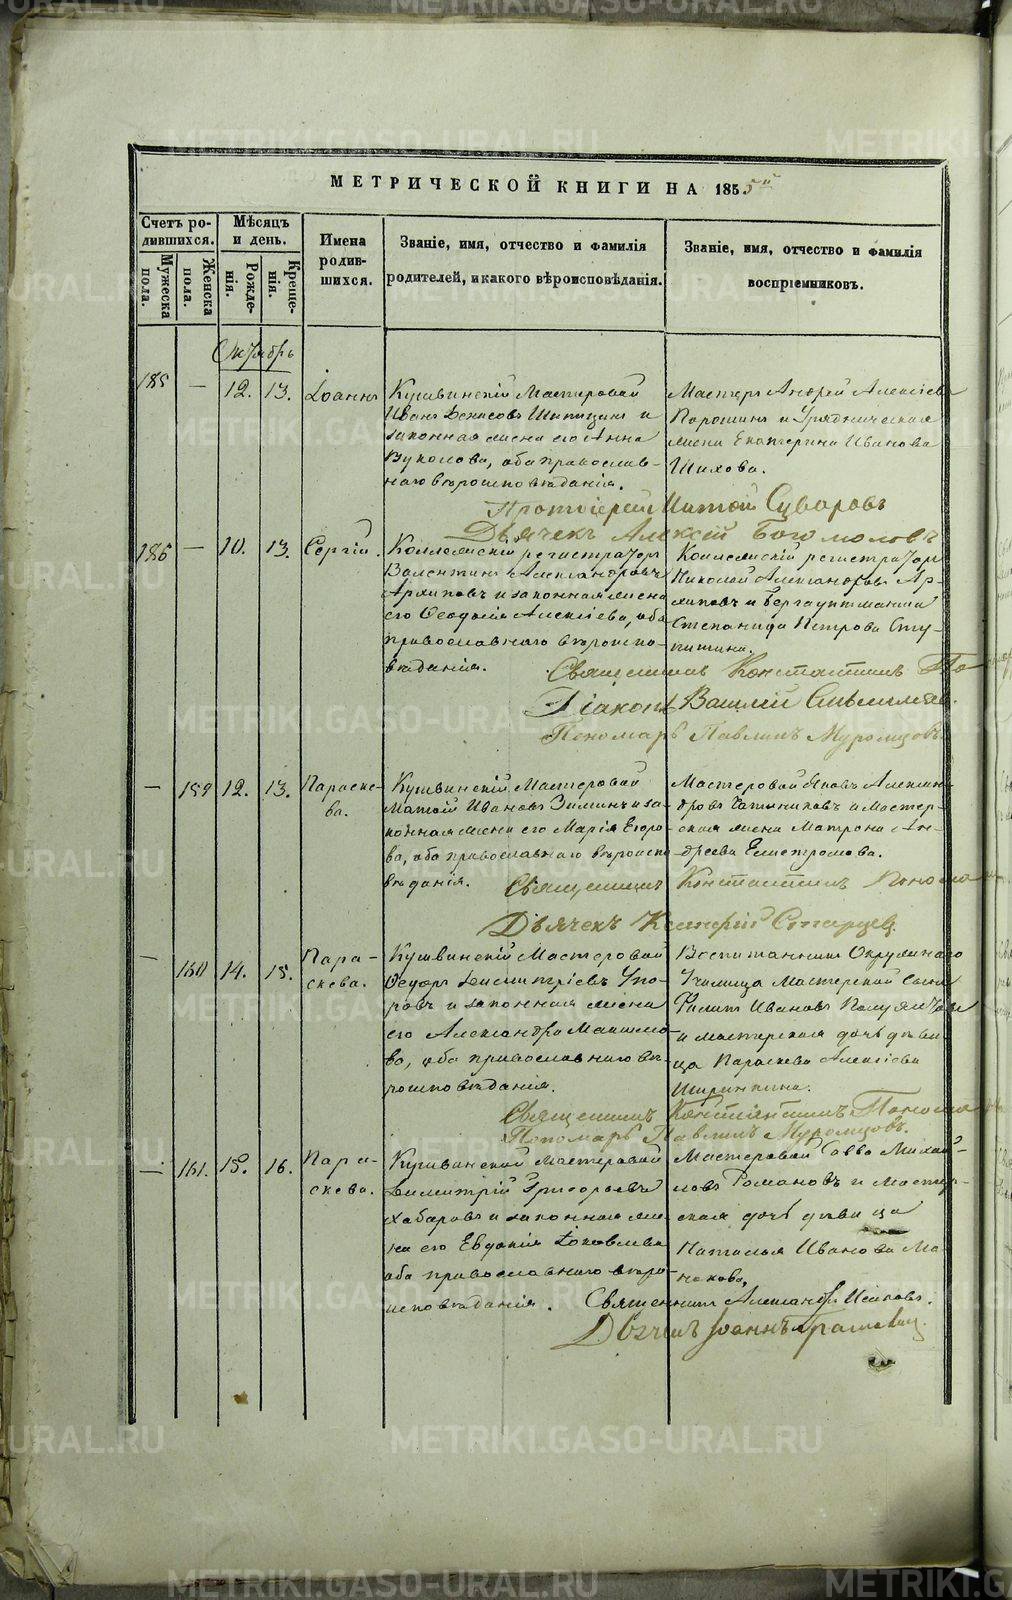 МЕТРИЧЕСКОЙ КНИГИ НА 1855й
Счетъ ро-
дившихся.
Мужеска
пола.
Женска
пола.
Мѣсяцъ
и день.
Рожде-
нія.
Креще-
нія.
Имена
родив-
шихся.
Званіе, имя, отчество и фамилія
родителей, и какого вѣроисповѣданія.
Званіе, имя, отчество и фамилія
воспріемниковъ.
Октябрь
185 — 12. 13. Іоаннъ
Кушвинскій Мастеровой
Иванъ Денисовъ Шипицынъ и
законная жена его Анна
Вуколова, оба православ-
наго вѣроисповѣданія.
Мастеръ Андрей Алексѣевъ
Порошинъ и Урядническая
жена Екатерина Иванова
Шихова.
Протоіерей Суворовъ
Дьячекъ Алексѣй Богомоловъ
186 — 10. 13. Сергій.
Коллежскій регистраторъ
Валентинъ Александровъ
Архиповъ и законная жена
его Ѳеодосія Алексѣева, оба
православнаго вѣроиспо-
вѣданія.
Коллежскій регистраторъ
Николай Александровъ Ар-
хиповъ и Бергауптманша
Степанида Петрова
Священникъ Константинъ По
Діаконъ Василій
Пономарь Павлинъ Муромцовъ
— 159 12. 13. Параске-
ва.
Кушвинскій Мастеровой
Матѳій Ивановъ Зиминъ и за-
конная жена его Марія Егоро-
ва, оба православнаго вѣроиспо-
вѣданія.
Мастеровой Яковъ Алексан-
дровъ и Мастер-
ская жена Матрона Ан-
дреева
Священникъ Константинъ Понома
Дьячекъ Старцев
— 160 14. 15. Пара-
скева.
Кушвинскій Мастеровой
Ѳедоръ Димитріевъ
и законная жена
его Александра Максимо-
ва, оба православнаго вѣ-
роисповѣданія.
Воспитанникъ Окружнаго
Училища Мастерской сынъ
Филипъ Ивановъ
и мастерская дочь дѣви-
ца Параскева Алексѣева
Ширинкина.
Священникъ Константинъ Понома
Пономарь Павлинъ Муромцовъ.
— 161. 15. 16. Пара-
скева.
Кушвинской Мастеровой
Димитрій Григорьевъ
Хабаровъ и законная же-
на его Евдокія Іаковлева
оба православнаго вѣро-
исповѣданія.
Мастеровой Савва Михай-
ловъ Романовъ и Мастер-
ская дочь дѣвица
Наталья Иванова Ма-
накова,
Священникъ Александръ
Дьячекъ Іоаннъ